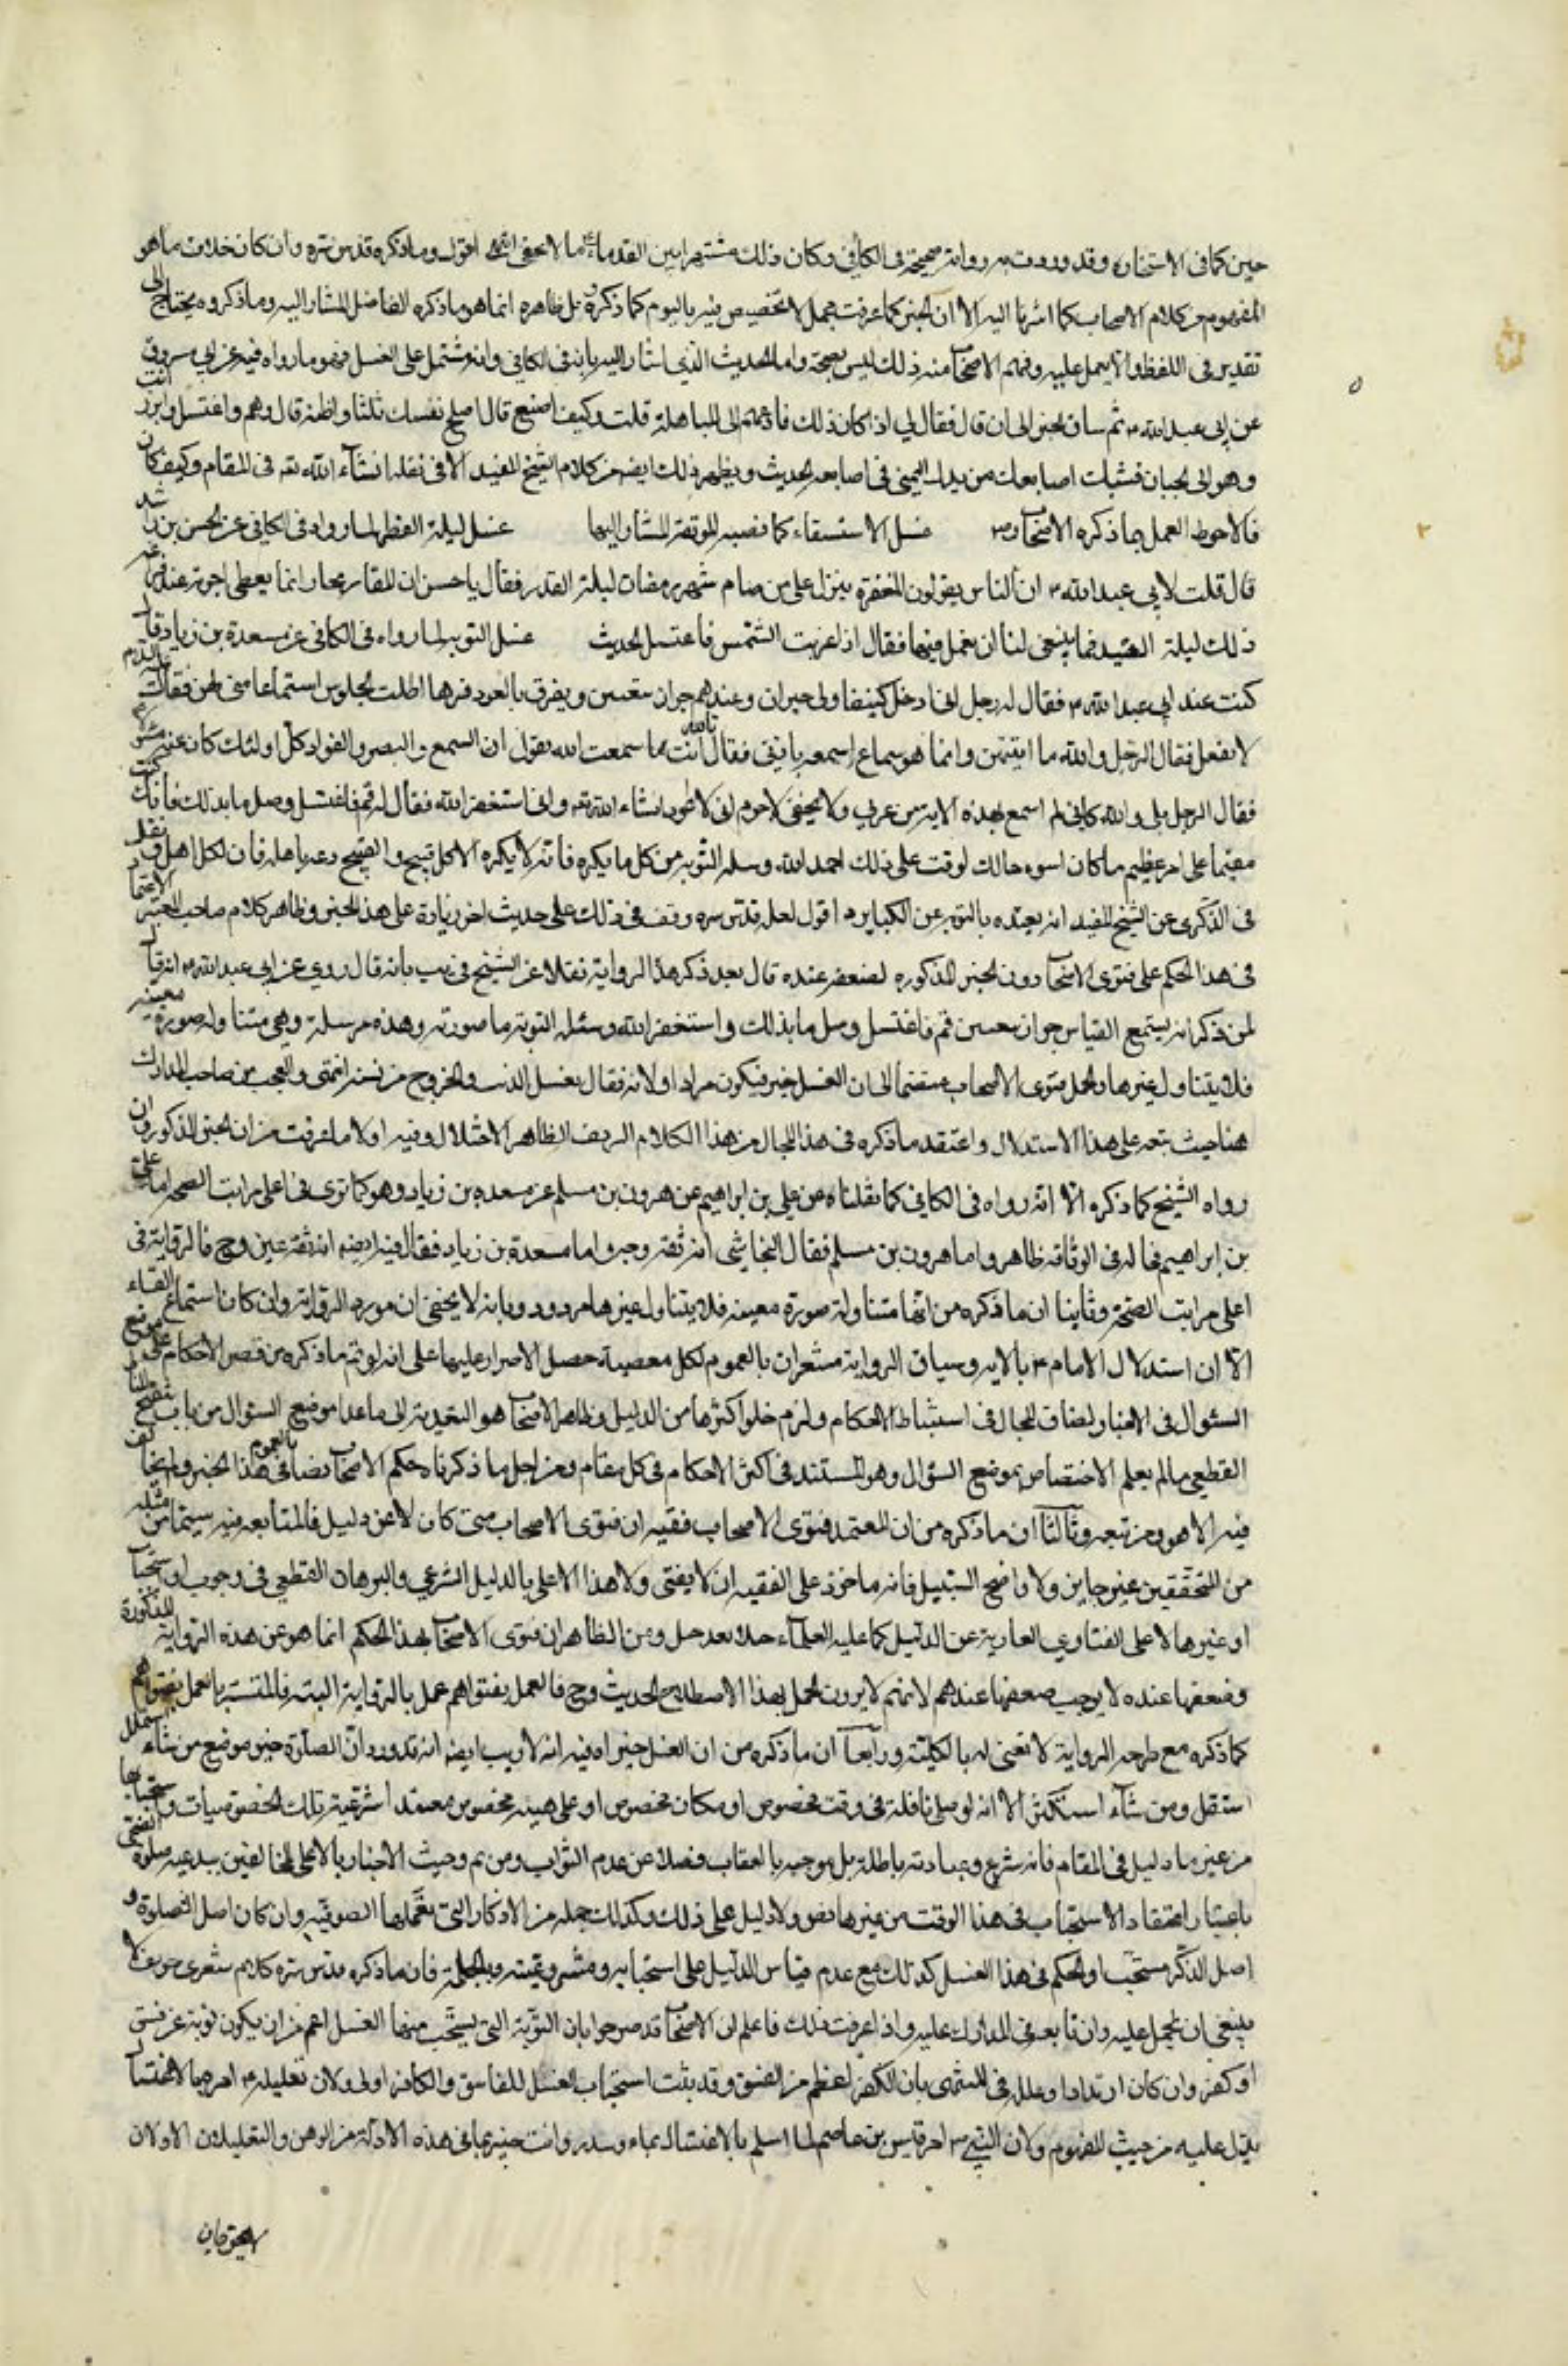 حين كما فى الاستخاره وقد وردت به رواية صحيحة فى الكافى وكان ذلك مشتهرا بين القدماء كما لا يخفى انتهى اقول وما ذكره قدس سره وان كان خلاف ما هو
المفهوم من كلام الاصحاب كما اشرنا اليه الا ان الخبر كما عرفت مجمل لا تخصيص فيه باليوم كما ذكروه بل ظاهره انما هو ما ذكره الفاضل المشار اليه وما ذكروه يحتاج الى
تقدير فى اللفظ والا يعمل عليه وفهم الاصحاب منه ذلك ليس بحجة واما الحديث الذي اشار اليه بانه فى الكافي وانه مشتمل على الغسل فهو ما رواه فيه عن ابي مسروق
عن ابى عبد الله ع ثم ساق الخبر الى ان قال فقال لي اذا كان ذلك فادعهم الى المباهلة قلت وكيف اصنع قال اصلح نفسك ثلثا واظنه قال وصم واغتسل وابرز انت
وهو الى الجبان فشبك اصابعك من يدك اليمنى فى اصابعه الحديث ويظهر ذلك ايضا من كلام الشيخ المفيد الاتى نقله انشاء الله تعه فى المقام وكيف كان
فالاحوط العمل بما ذكره الاصحاب رض غسل الاستسقاء كما تضمنه الموثقة المشار اليها غسل ليلة الفطر لما رواه فى الكافي عن الحسن بن راشد
قال قلت لابي عبد الله ع ان الناس يقولون المغفرة ينزل على من صام شهر رمضان ليلة القدر فقال يا حسن ان القاريجار انما يعطى اجرته عند فراغه
ذلك ليلة العيد فما ينبغى لنا ان نعمل فيها فقال اذا غربت الشمس فاغتسل الحديث غسل التوبه لما رواه فى الكافي عن مسعدة بن زياد قال
كنت عند ابي عبد الله ع فقال له رجل انى ادخل كنيفا ولى جيران وعندهم جوار يتغنين ويضربن بالعود فربما اطلت الجلوس استماعا منى لهن فقال ع
لا تفعل فقال الرجل والله ما اتيتهن وانما هو سماع اسمعه باذنى فقال بالله انت اما سمعت الله يقول ان السمع والبصر والفؤاد كل اولئك كان عنه مسئولا
فقال الرجل بلى والله كانى لم اسمع بهذه الاية من عربي ولا عجمي لا جرم انى لا اعود انشاء الله تعه وانى استغفر الله فقال له قم فاغتسل وصل ما بدا لك فانك كنت
مقيما على امر عظيم ما كان اسوء حالك لو مت على ذلك احمد الله وسله التوبه من كل ما يكره فانه لا يكره الا كل قبيح والقبيح دعه باهله فان لكل اهلا ونقل
فى الذكرى عن الشيخ المفيد انه قيده بالتوبه عن الكباير اقول لعله قدس سره وقف فى ذلك على حديث اخر زيادة على هذا الخبر وظاهر كلام صاحب المعتبر الاعتماد
فى هذا الحكم على فتوى الاصحاب دون الخبر المذكوره لضعفه عنده قال بعد ذكر هذه الرواية نقلا عن الشيخ فى يب بانه قال روي عن ابي عبد الله ع انه قال
لمن ذكر انه يستمع الغناء من جوار يتغنين قم فاغتسل وصل ما بدا لك واستغفر الله وسئله التوبة ما صورته وهذه مرسلة وهي متناولة صورة معينه
فلا يتناول غيرها والعمل بفتوى الاصحاب منضما الى ان الغسل خير فيكون مرادا ولانه فقال بغسل الذنب والخروج من دنسه انتهى والعجب من صاحب المدارك
هنا حيث تبعه على هذا الاستدلال واعتقد ما ذكره فى هذا المجال من هذا الكلام الظاهر الاختلال وفيه اولا ما عرفت من ان الخبر المذكور وان
رواه الشيخ كما ذكره الا انه رواه فى الكافي كما نقلناه عن علي بن ابراهيم عن هرون بن مسلم عن مسعده بن زياد وهو كما ترى فى اعلى مراتب الصحه اما على
بن ابراهيم فحاله فى الوثاقه ظاهر واما هرون بن مسلم فقال النجاشي انه ثقه وجه واما مسعدة بن زياد فقال فيه ايضا انه ثقة عين وح فالرواية فى
اعلى مراتب الصحه وثانيا ان ما ذكره من انها متناولة صورة معينه فلا يتناول غيرها مردود بانه لا يخفى ان مورد الرواية وان كان استماع الغناء
الا ان استدلال الامام ع بالايه وسياق الرواية مشعران بالعموم لكل معصية حصل الاصرار عليها على انه لو تم ما ذكره من قصر الاحكام على موضع
السئوال فى الاخبار لضاق المجال فى استنباط الاحكام ولزم خلو اكثرها من الدليل وظاهر الاصحاب هو التعدية الى ما عدا موضع السئوال من باب تنقيح المناط
القطعي ما لم يعلم الاختصاص بموضع السؤال وهو المستند فى اكثر الاحكام فى كل مقام ومن اجل ما ذكرناه حكم الاصحاب رضا بالعموم فى هذا الخبر ولم يخالف
فيه الا هو ومن تبعه وثالثا ان ما ذكره من ان المعتمد فتوى الاصحاب ففيه ان فتوى الاصحاب متى كان لا عن دليل فالمتابعه فيه سيما من مثله
من المحققين غير جايز ولا واضح السبيل فانه ماخوذ على الفقيه ان لا يفتى ولا هذا الا على بالدليل الشرعي والبرهان القطعي فى وجوب او استحباب
او غيرها لا على الفتاوي العارية عن الدليل كما عليه العلماء جيلا بعد جيل ومن الظاهر ان فتوى الاصحاب بهذا الحكم انما هو عن هذه الرواية المذكورة
وضعفها عنده لا يوجب ضعفها عندهم لانهم لا يرون العمل بهذا الاصطلاح الحديث وح فالعمل بفتواهم عمل بالرواية البته فالتستر بالعمل بفتواهم
كما ذكره مع طرحه الرواية لا معنى له بالكلية ورابعا ان ما ذكره من ان الغسل خير اه فيه انه لا ريب ايضا انه قد ورد ان الصلوة خير موضوع من شاء استقلال
استقل ومن شاء استكثر الا انه لو صلى نافلة فى وقت مخصوص او مكان مخصوص او على هيئه مخصوص معتقدا شرعية تلك الخصوصيات واستحبابها
من غير ما دليل فى المقام فانه شرع وعبادته باطلة بل موجبه بالعقاب فضلا عن عدم الثواب ومن ثم وحيث الاخبار بالانحاء المخالفين ببدعيه صلوة الضحى
باعتبار اعتقاد الاستحباب فى هذا الوقت من غيرها نص ولا دليل على ذلك وكذلك جمله من الاذكار التى يعملها الصوفيه وان كان اصل الصلوة و
اصل الذكر مستحب او الحكم فى هذا الغسل كذلك مع عدم قيام الدليل على استحبابه ومشروعيته وبالجملة فان ما ذكره قدس سره كلام شعرى لا
ينبغى ان يحمل عليه وان تابعه فى المدارك عليه واذا عرفت ذلك فاعلم ان الاصحاب قد صرحوا بان التوبة التى يستحب منها الغسل اعم من ان يكون توبة عن فسق
او كفر وان كان ارتدادا وعلله فى المنتهى بان الكفر اعظم من الفسق وقد ثبت استحباب الغسل للفاسق والكافر اولى ولان تعليله ع امره بالاغتسال
يدل عليه من حيث المفهوم ولان النبى ص امر قيس بن عاصم لما اسلم بالاغتسال بماء وسدر وانت خبير بما فى هذه الادلة من الوهن والتعليلان الاولان